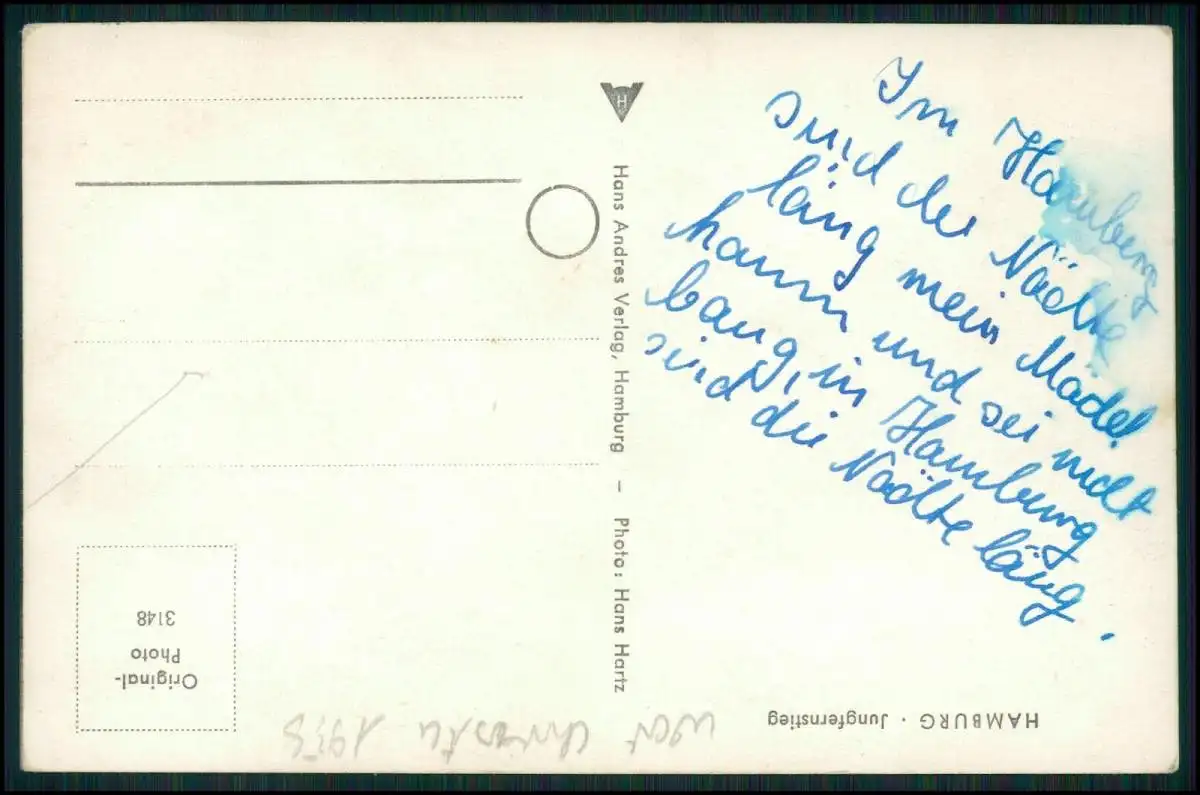 Im Hamburg
sind der Nächte
läng mein Mädel
hamm und sei nicht
bang, in Hamburg
sind die Nächte läng.
H
Hans Andres Verlag, Hamburg – Photo: Hans Hartz
HAMBURG · Jungfernstieg
Original-
Photo
3148